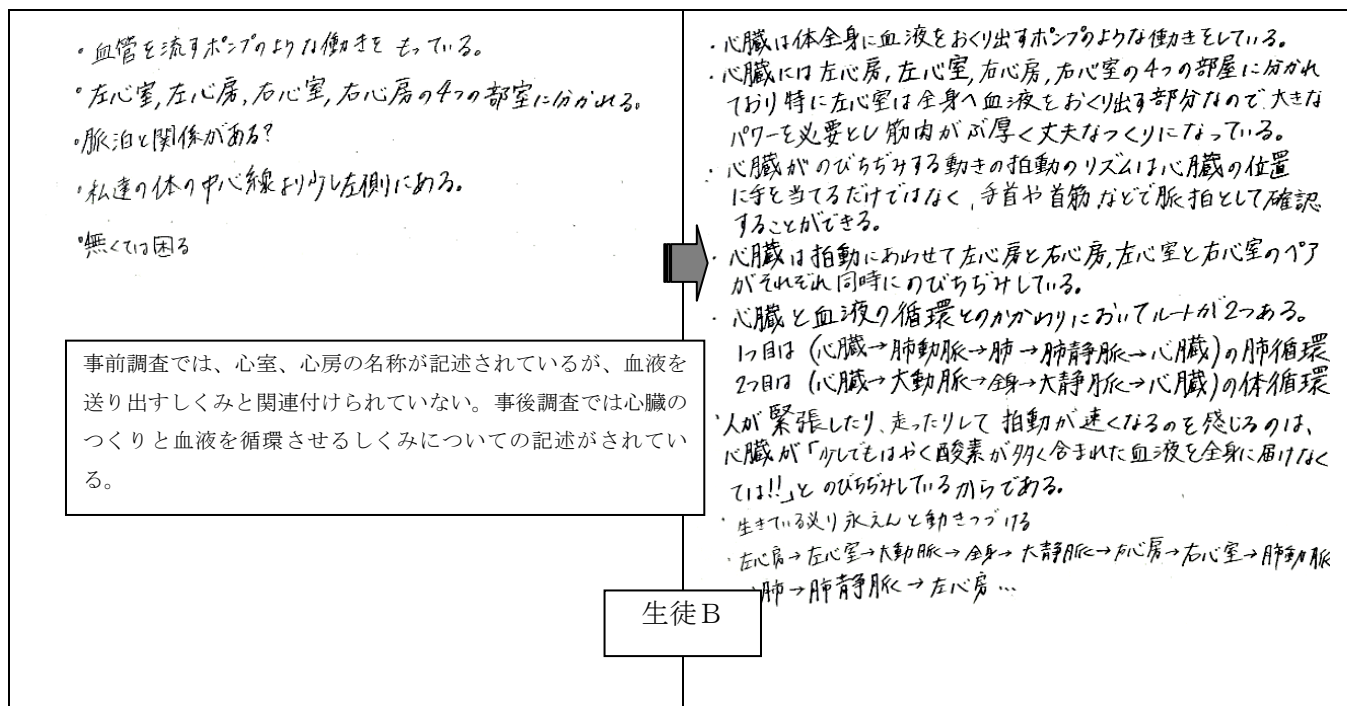 ・血管を流すポンプのような働きをもっている。
・左心室,左心房,右心室,右心房の4つの部室に分かれる。
・脈泊と関係がある?
・私達の体の中心線より少し左側にある。
・無くては困る
事前調査では、心室、心房の名称が記述されているが、血液を
送り出すしくみと関連付けられていない。事後調査では心臓の
つくりと血液を循環させるしくみについての記述がされてい
る。
・心臓は体全身に血液をおくり出すポンプのような働きをしている。
・心臓には左心房,左心室,右心房,右心室の4つの部屋に分かれ
ており特に左心室は全身へ血液をおくり出す部分なので、大きな
パワーを必要とし筋肉がぶ厚く丈夫なつくりになっている。
・心臓がのびちぢみする動きの拍動のリズムは心臓の位置
に手を当てるだけではなく、手首や首筋などで脈拍として確認
することができる。
・心臓は拍動にあわせて左心房と右心房,左心室と右心室のペア
がそれぞれ同時にのびちぢみしている。
・心臓と血液の循環とのかかわりにおいてルートが2つある。
1つ目は(心臓→肺動脈→肺→肺静脈→心臓)の肺循環
2つ目は(心臓→大動脈→全身→大静脈→心臓)の体循環
・人が緊張したり、走ったりして拍動が速くなるのを感じるのは、
心臓が「少しでもはやく酸素が多く含まれた血液を全身に届けなく
ては!!」とのびちぢみしているからである。
・生きている限り永えんと動きつづける
・左心房→左心室→大動脈→全身→大静脈→右心房→右心室→肺動脈
→肺→肺静脈→左心房…
生徒B